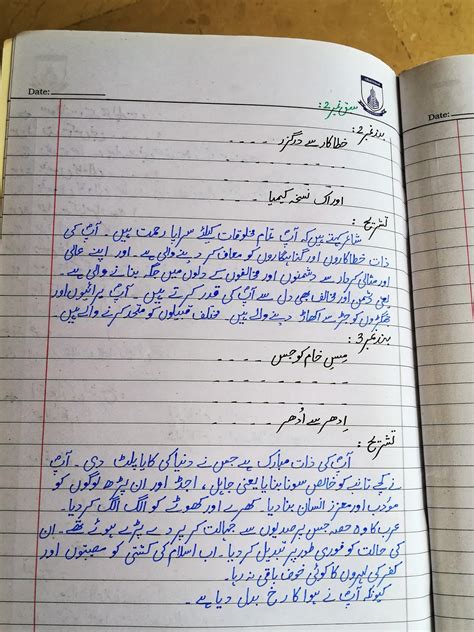 Date:
Date:
سبق نمبر 2:
بند نمبر 2:
خطا کار سے درگزر - - - -
- - - - -
اور اک نسخہ کیمیا - - - - -
تشریح:
شاعر کہتے ہیں کہ آپؐ تمام مخلوقات کیلئے سراپا رحمت ہیں۔ آپؐ کی
ذات خطاکاروں اور گناہگاروں کو معاف کر دینے والی ہے۔ اور اپنے عالی
اور مثالی کردار سے دشمنوں اور مخالفوں کے دلوں میں جگہ بنانے والی ہے۔
یعنی دشمن اور مخالف بھی دل سے آپؐ کی قدر کرتے ہیں۔ آپؐ برائیوں اور
جھگڑوں کو جڑ سے اکھاڑ دینے والے ہیں۔ مختلف قبیلوں کو متحد کرنے والے ہیں۔
بند نمبر 3:
مِسِ خام کو جس - - - - -
- - - - -
اِدھر سے اُدھر - - - -
تشریح:
آپؐ کی ذات مبارک ہے جس نے دنیا کی کایا پلٹ دی۔ آپؐ
نے کچے تانبے کو خالص سونا بنایا یعنی جاہل، اجڈ اور ان پڑھ لوگوں کو
مؤدب اور معزز انسان بنا دیا۔ کھرے اور کھوٹے کو الگ الگ کر دیا۔
عرب کا وہ حصہ جس پر صدیوں سے جہالت کے پردے پڑے ہوئے تھے۔ ان
کی حالت کو فوری طور پر تبدیل کر دیا۔ اب اسلام کی کشتی کو مصیبتوں اور
کفر کی لہروں کا کوئی خوف باقی نہ رہا۔
کیونکہ آپؐ نے ہوا کا رخ بدل دیا ہے۔